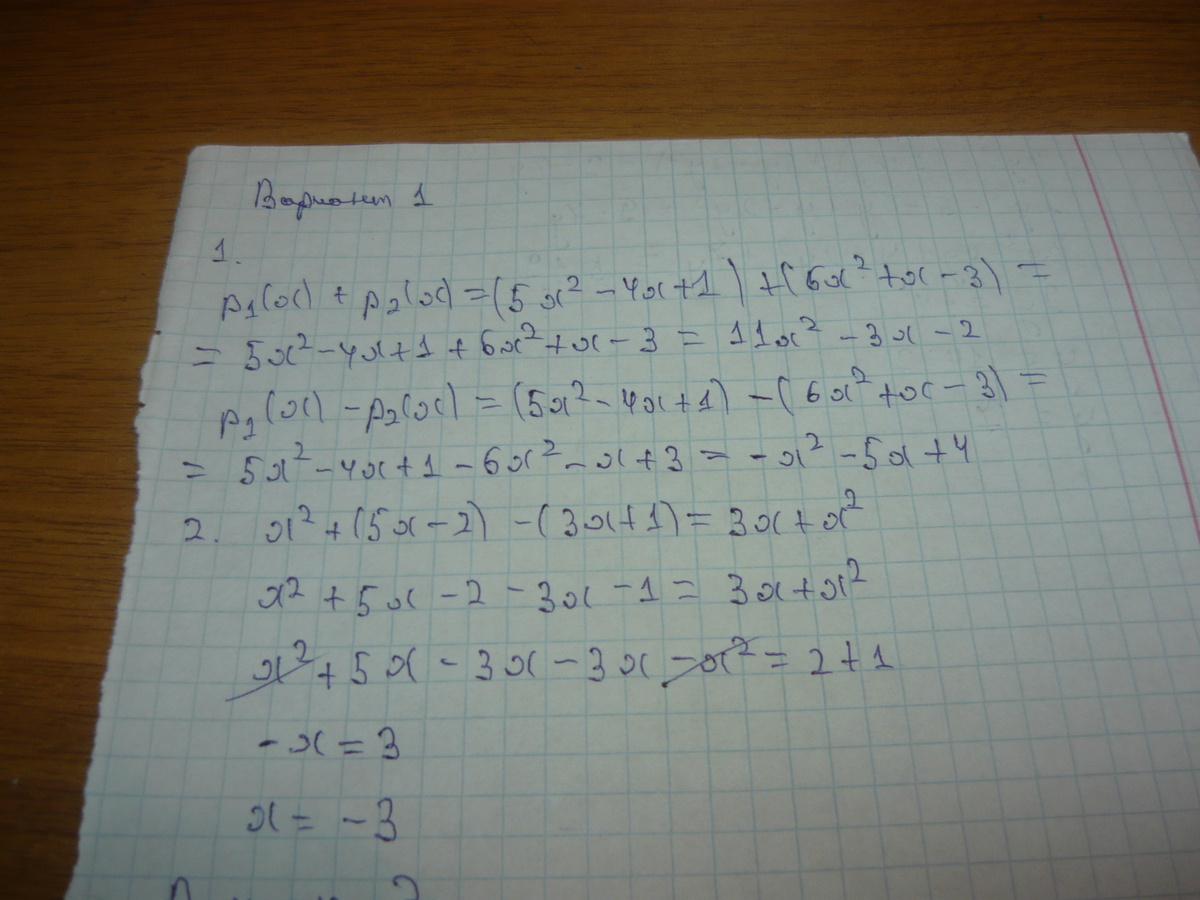 Вариант 1
1.
p₁(x) + p₂(x) = (5x² - 4x + 1) + (6x² + x - 3) =
= 5x² - 4x + 1 + 6x² + x - 3 = 11x² - 3x - 2
p₁(x) - p₂(x) = (5x² - 4x + 1) - (6x² + x - 3) =
= 5x² - 4x + 1 - 6x² - x + 3 = -x² - 5x + 4
2. x² + (5x - 2) - (3x + 1) = 3x + x²
x² + 5x - 2 - 3x - 1 = 3x + x²
x² + 5x - 3x - 3x - x² = 2 + 1
-x = 3
x = -3